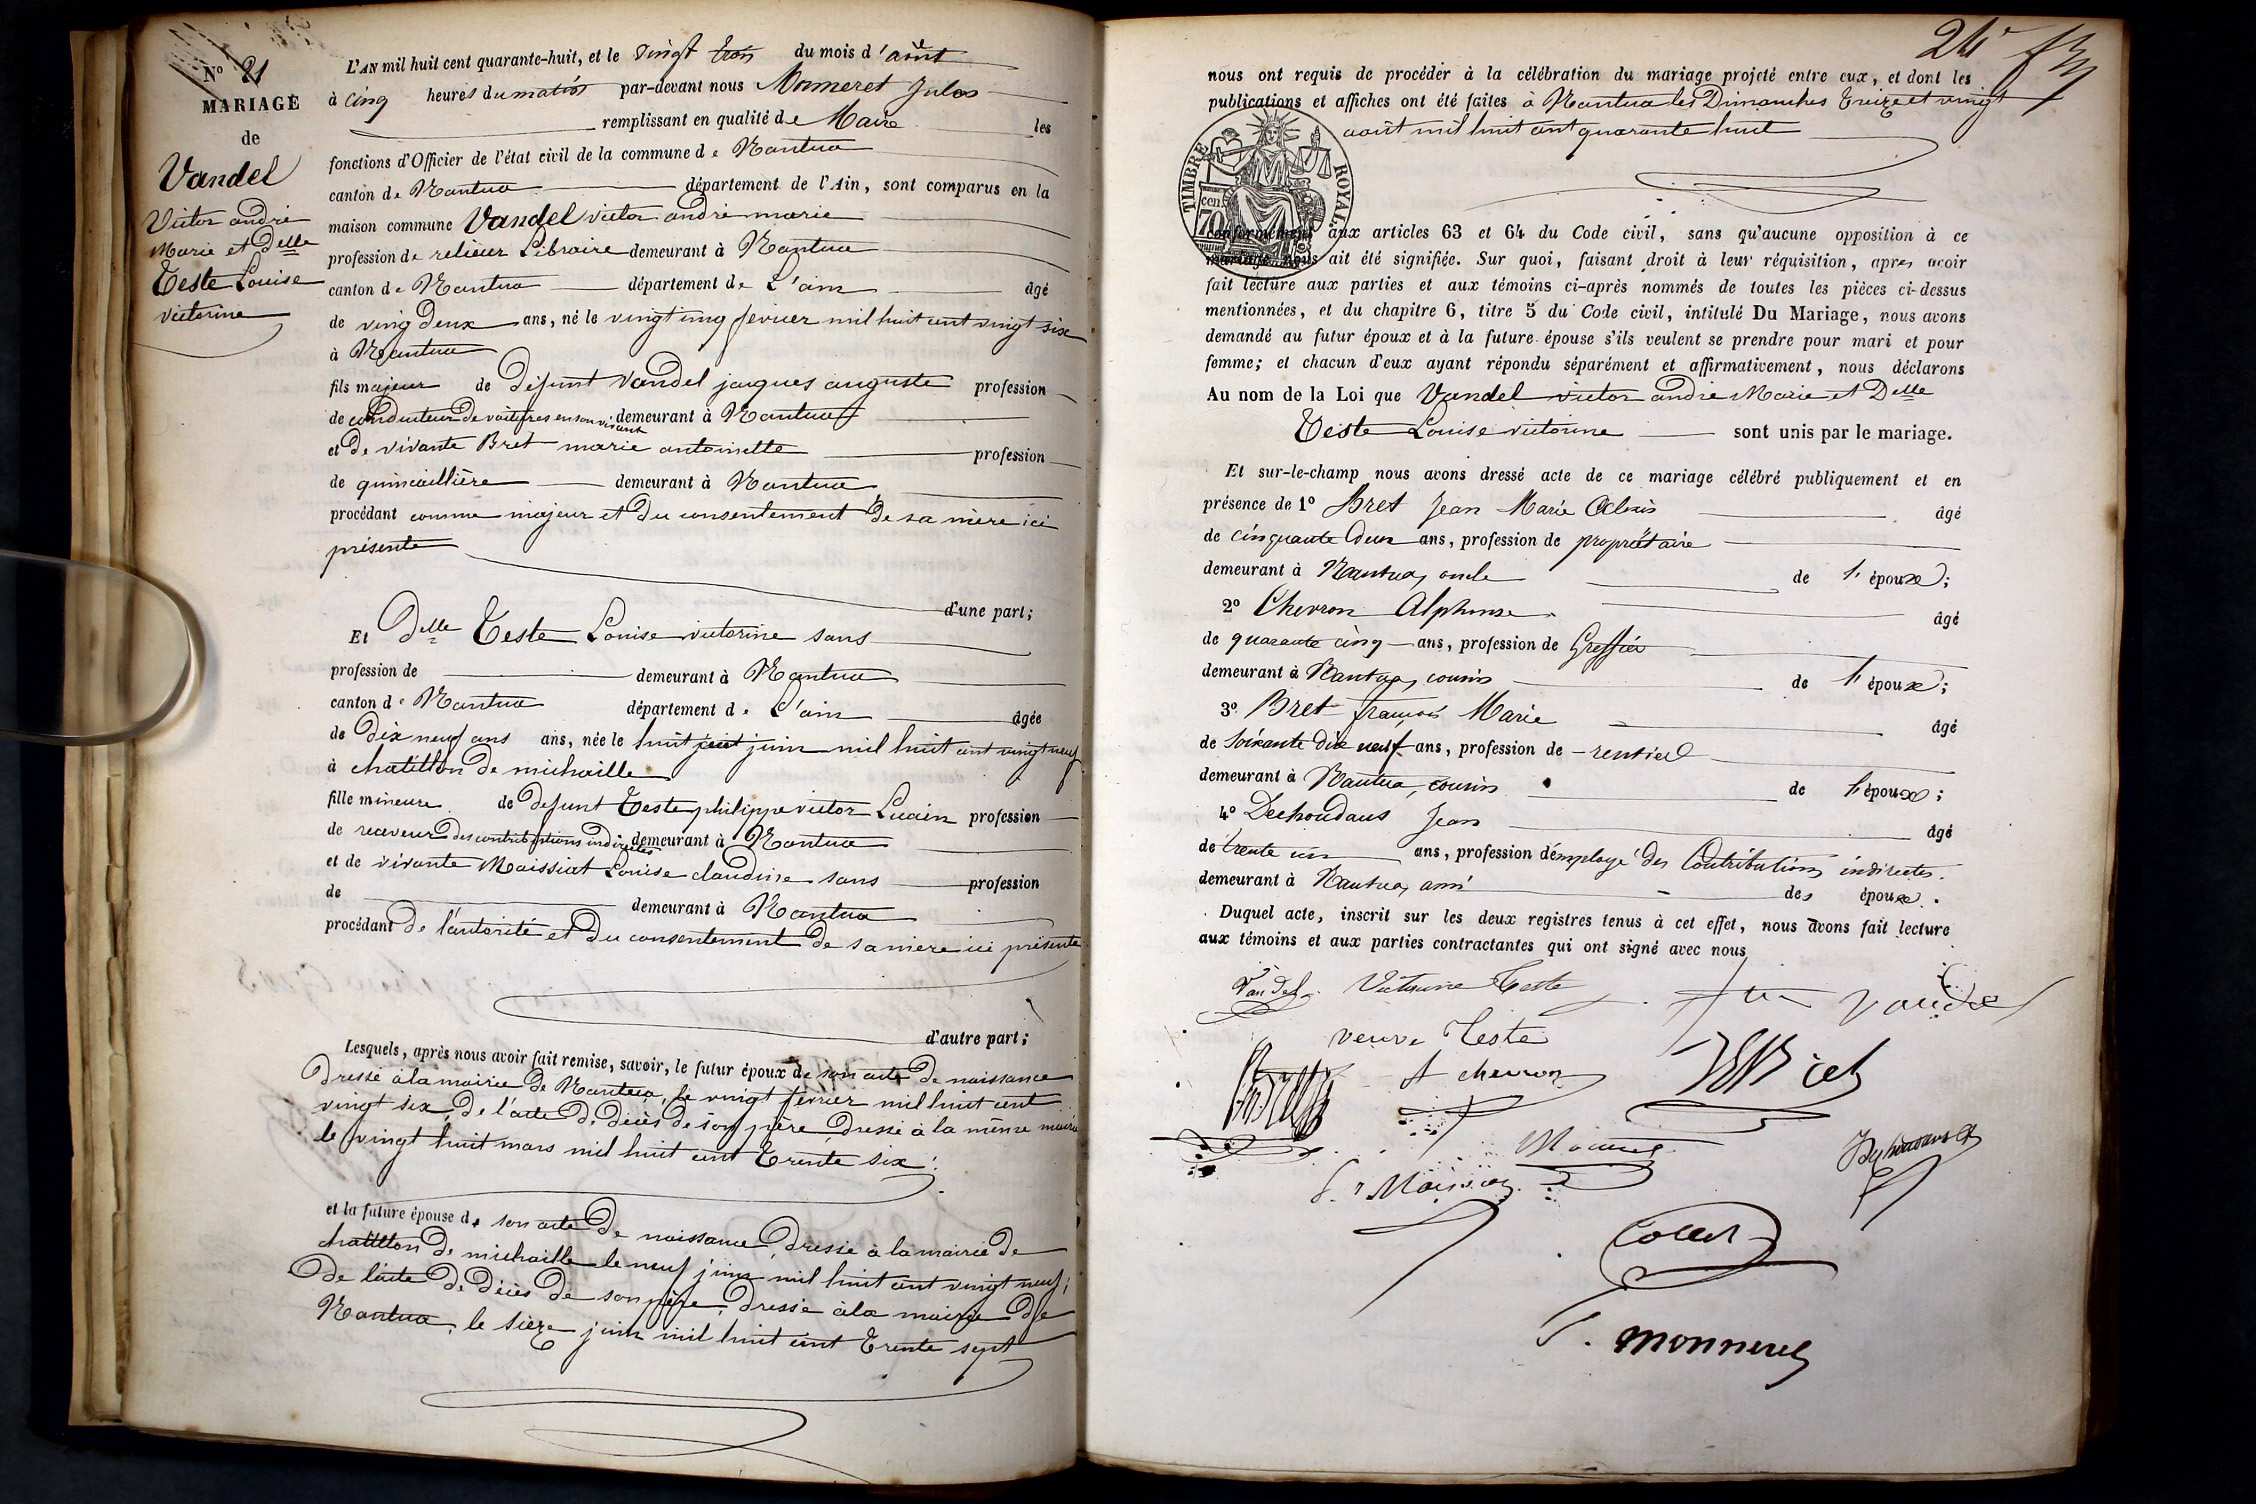 N° 21
MARIAGE
de
Vandel
Victor andré
Marie et Delle
Teste Louise
victorine
L'AN mil huit cent quarante-huit, et le vingt trois du mois d'août
à cinq heures du matin par-devant nous Monneret Jules
remplissant en qualité de Maire les
fonctions d'Officier de l'état civil de la commune de Nantua
canton de Nantua département de l'Ain, sont comparus en la
maison commune Vandel victor andré marie
profession de relieur Libraire demeurant à Nantua
canton de Nantua département de L'ain âgé
de ving deux ans, né le vingt cinq février mil huit cent vingt six
à Nantua
fils majeur de défunt Vandel jacques auguste profession
de conducteur de voitures en son vivant demeurant à Nantua
et de vivante Bret marie antoinette profession
de quincaillière demeurant à Nantua
procédant comme majeur et du consentement de sa mère ici
présente
d'une part;
Et Delle Teste Louise victorine sans
profession de demeurant à Nantua
canton de Nantua département de L'ain âgée
de dix neuf ans ans, née le huit juin mil huit cent vingt neuf
à chatillon de michaille
fille mineure de defunt Teste philippe victor Lucien profession
de receveur des contributions indirectes demeurant à Nantua
et de vivante Maissiat Louise claudine sans profession
de demeurant à Nantua
procédant de l'autorité et du consentement de sa mère ici présente
d'autre part;
Lesquels, après nous avoir fait remise, savoir, le futur époux de son acte de naissance
dressé à la mairie de Nantua, le vingt février mil huit cent
vingt six, de l'acte de décès de son père, dressé à la même mairie
le vingt huit mars mil huit cent trente six.
et la future épouse de son acte de naissance, dressé à la mairie de
chatillon de michaille le neuf juin mil huit cent vingt neuf;
De l'acte de décès de son père, dressé à la mairie de
Nantua, le sieze juin mil huit cent trente sept
24e
nous ont requis de procéder à la célébration du mariage projeté entre eux, et dont les
publications et affiches ont été faites à Nantua les Dimanches treize et vingt
août mil huit cent quarante huit
TIMBRE ROYAL
70 cen
conformément aux articles 63 et 64 du Code civil, sans qu'aucune opposition à ce
mariage nous ait été signifiée. Sur quoi, faisant droit à leur réquisition, après avoir
fait lecture aux parties et aux témoins ci-après nommés de toutes les pièces ci-dessus
mentionnées, et du chapitre 6, titre 5 du Code civil, intitulé Du Mariage, nous avons
demandé au futur époux et à la future épouse s'ils veulent se prendre pour mari et pour
femme; et chacun d'eux ayant répondu séparément et affirmativement, nous déclarons
Au nom de la Loi que Vandel victor andré Marie et Delle
Teste Louise victorine sont unis par le mariage.
Et sur-le-champ nous avons dressé acte de ce mariage célébré publiquement et en
présence de 1° Bret Jean Marie Alexis âgé
de cinquante deux ans, profession de propriétaire
demeurant à Nantua, oncle de l'époux;
2° Chevron Alphonse âgé
de quarante cinq ans, profession de Greffier
demeurant à Nantua, cousin de l'époux;
3° Bret françois Marie âgé
de soixante dix neuf ans, profession de rentier
demeurant à Nantua, cousin de l'époux;
4° Dechoudans Jean âgé
de trente un ans, profession d'employé des Contributions indirectes.
demeurant à Nantua, ami des époux.
Duquel acte, inscrit sur les deux registres tenus à cet effet, nous avons fait lecture
aux témoins et aux parties contractantes qui ont signé avec nous
Vandel Victorine Teste Vandel
veuve Teste
A chevron Bret
Collet
J. Monneret